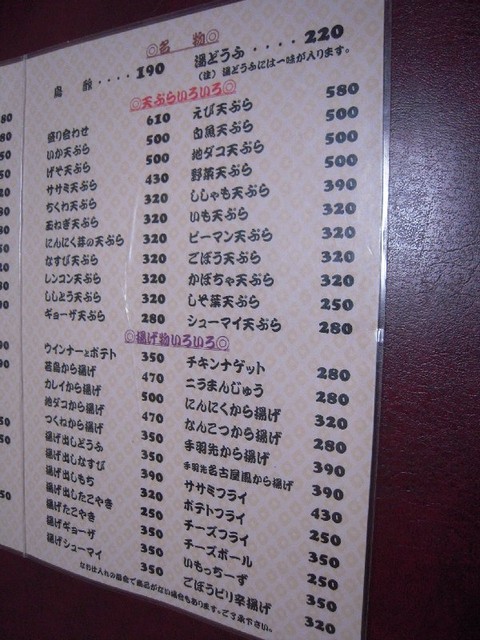 ◎名 物◎
鳥 酢‥‥190 湯どうふ‥‥220
(注)湯どうふには一味が入ります。
◎天ぷらいろいろ◎
盛り合わせ 610
いか天ぷら 500
げそ天ぷら 500
ササミ天ぷら 430
ちくわ天ぷら 320
玉ねぎ天ぷら 320
にんにく芽の天ぷら 320
なすび天ぷら 320
レンコン天ぷら 320
ししとう天ぷら 320
ギョーザ天ぷら 280
えび天ぷら 580
白魚天ぷら 500
地ダコ天ぷら 500
野菜天ぷら 500
ししゃも天ぷら 390
いも天ぷら 320
ピーマン天ぷら 320
ごぼう天ぷら 320
かぼちゃ天ぷら 320
しそ葉天ぷら 250
シューマイ天ぷら 280
◎揚げ物いろいろ◎
ウインナーとポテト 350
若鳥から揚げ 470
カレイから揚げ 500
地ダコから揚げ 470
つくねから揚げ 350
揚げ出しどうふ 350
揚げ出しなすび 350
揚げ出しもち 390
揚げ出したこやき 320
揚げたこやき 250
揚げギョーザ 350
揚げシューマイ 350
チキンナゲット 280
ニラまんじゅう 280
にんにくから揚げ 320
なんこつから揚げ 280
手羽先から揚げ 390
手羽先名古屋風から揚げ 390
ササミフライ 430
ポテトフライ 250
チーズフライ 350
チーズボール 250
いもっちーず 350
ごぼうピリ辛揚げ 320
なお仕入れの都合で商品がない場合もあります。ご了承下さい。